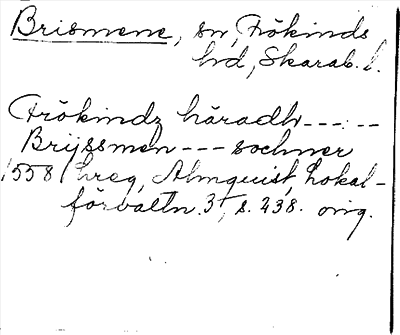 Brismene, sn, Frökinds
hd, Skarab. l.
Frökindz häradh -----
Brijssmen --- sochner
1558 Almquist, Lokal-
förvaltn. 3, s. 238. orig.